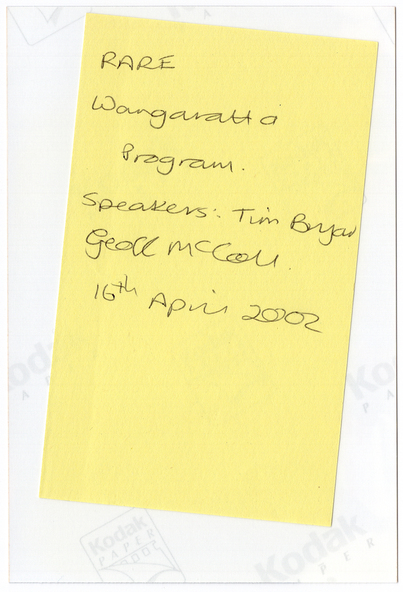 RARE
Wangaratta
Program.
Speakers: Tim Bryan
Geoff McColl.
16th April 2002
Kodak
PAPER
Kodak
PAPER
Kodak
PAPER